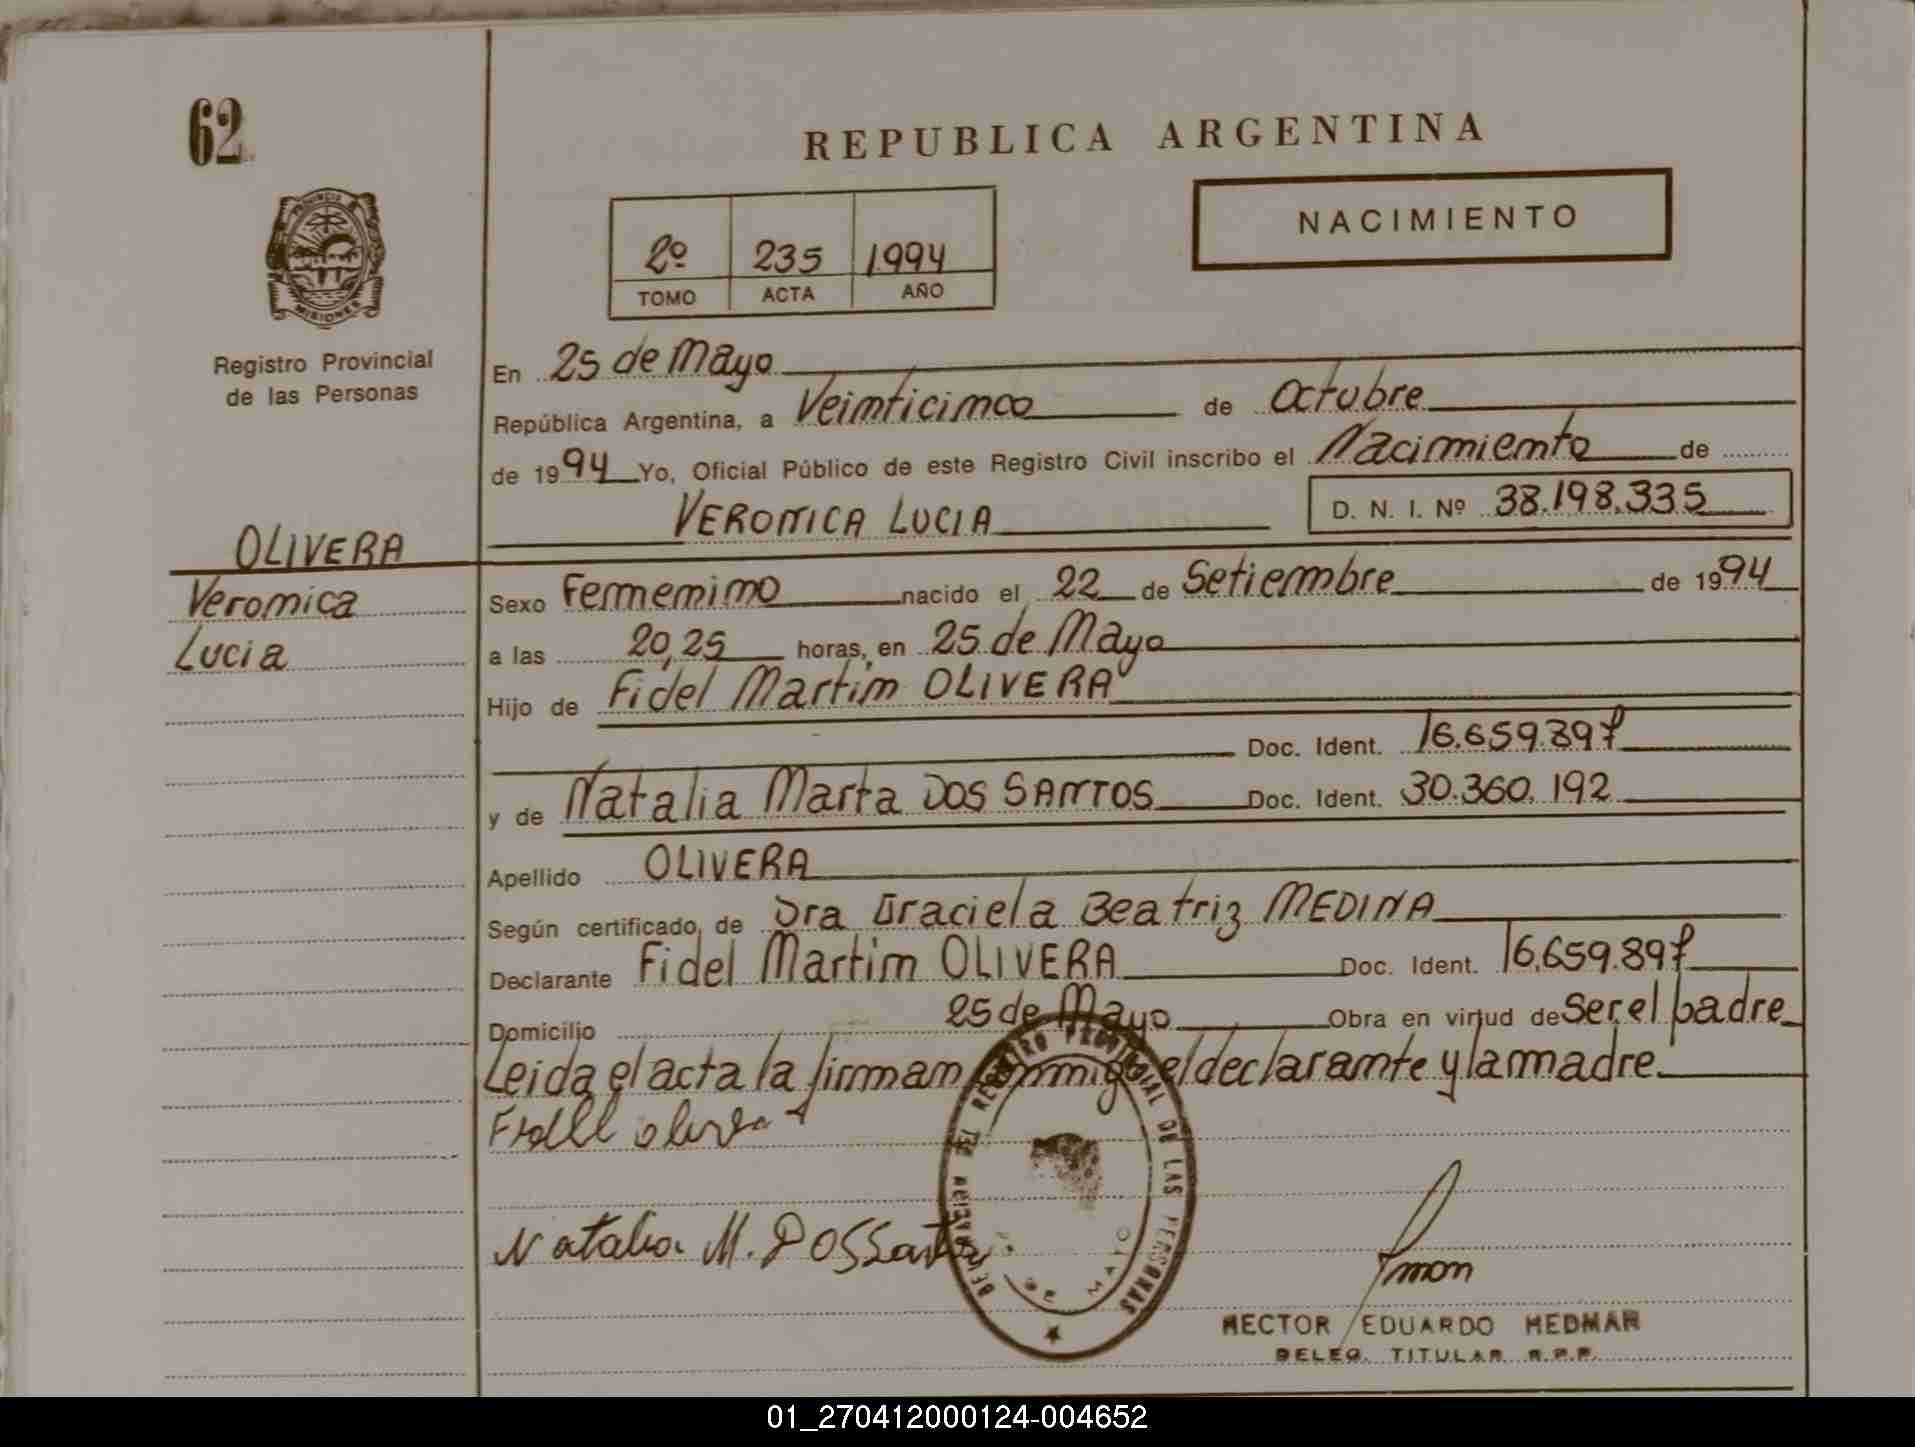 62
REPUBLICA ARGENTINA
NACIMIENTO
2º 235 1994
TOMO ACTA AÑO
PROVINCIA
MISIONES
Registro Provincial
de las Personas
En 25 de Mayo
República Argentina, a Veinticinco de Octubre
de 1994 Yo, Oficial Público de este Registro Civil inscribo el Nacimiento de
VERONICA LUCIA D. N. I. Nº 38.198.335
OLIVERA
Veronica
Lucia
Sexo Femenino nacido el 22 de Setiembre de 1994
a las 20,25 horas, en 25 de Mayo
Hijo de Fidel Martin OLIVERA
Doc. Ident. 16.659.897
y de Natalia Marta DOS SANTOS Doc. Ident. 30.360.192
Apellido OLIVERA
Según certificado, de Dra Graciela Beatriz MEDINA
Declarante Fidel Martin OLIVERA Doc. Ident. 16.659.897
Domicilio 25 de Mayo Obra en virtud de Ser el padre
Leida el acta la firman conmigo el declarante y la madre
Fidel olivera
Natalia M. Dos Santos
DELEGACION DEL REGISTRO PROVINCIAL DE LAS PERSONAS
DE MAYO
HECTOR EDUARDO HEDMAN
DELEG. TITULAR R.P.P.
01_270412000124-004652